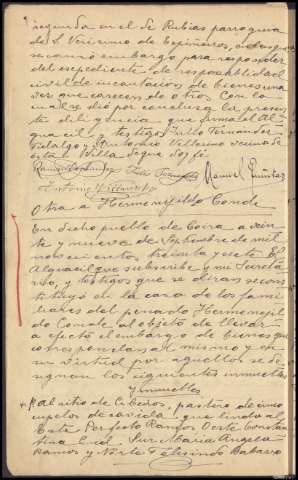 segunda en el de Rubias parroquia
de S. Verisimo de Espiñeiros, a los que
se causó embargo para responder
del expediente de responsabilidad
civil de incautacion de bienes una
vez que carecen de otros. Con la
cual se dió por conclusa la presen
te diligencia que firma el Al
guacil y testigos Julio Fernandez
Fidalgo y Antonio Villarino vecinos de
esta Villa de que doy fé
Manuel
Antonio Villarino
Otra a Hermenegildo Conde
En dicho pueblo de Coira a vein
te y nueve de Septiembre de mil
novecientos treinta y siete El
Alguacil que subscribe y mi Secreta
rio, y testigos que se diran se cons
tituyó en la casa de los fami
liares del penado Hermenegil
do Conde al objeto de llevar
a efecto el embargo de bienes que
corresponden al mismo y en
su virtud por aquellos se de
signan los siguientes inmuebles
y inmuebles
Al sitio de Cibeiros, pastero de cinco
copelos de cavida, que linda al
Este Perfecto Ramos Oeste Constan
tina Cid Sur Maria Angela
Ramos y Norte Felisindo